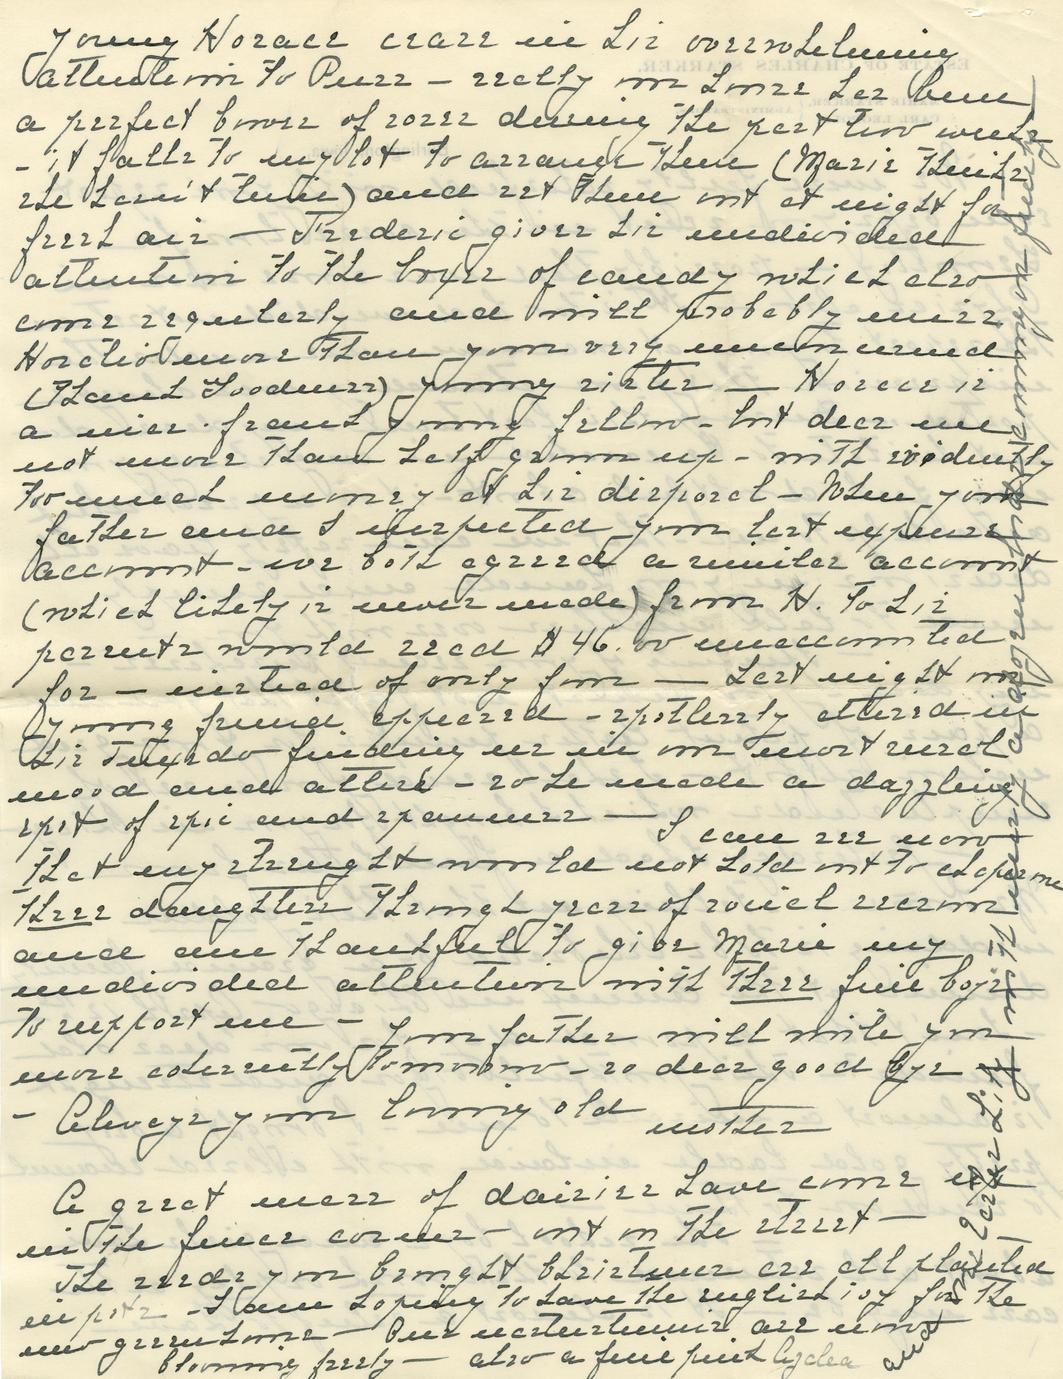 young Horace
attention to Pers – really our house has been
a perfect bower of roses during the past two weeks
– it falls to my lot to arrange them (Marie thinks
she hasn't time) and set them out at night for
fresh air — Frederic gives his undivided
attention to the boxes of candy which also
come regularly and will probably miss
Horatio more than your very unconcerned
(thank goodness) young sister — Horace is
a nice frank young fellow – but dear me
not more than half grown up – with evidently
too much money at his disposal – When your
father and I inspected your last expense
account – we both agreed a similar account
(which likely is never made) from H. to his
parents would read $46.00 unaccounted
for – instead of only four — Last night our
young friend appeared – spotlessly attired in
his Tuxedo finding us in our most rural
mood and attire – so he made a dazzling
spot of spic and spanness — I can see now
that my strength would not hold out to chaperone
three daughters through years of social season
and am thankful to give Marie my
undivided attention with three fine boys
to support me – Your father will write you
more coherently tomorrow – so dear good bye
– Always your loving old mother
A great mass of daisies have come up
in the fence corner – out on the street —
The seeds you brought Christmas are all planted
in pots – I am hoping to have the english ivy for the
new greenhouse — Our nasturtiums are now
blooming freely — also a fine pink Azalea